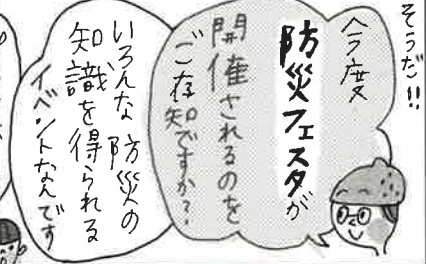 そうだ!!
今度
防災フェスタが
開催されるのを
ご存知ですか?
いろんな防災の
知識を得られる
イベントなんです